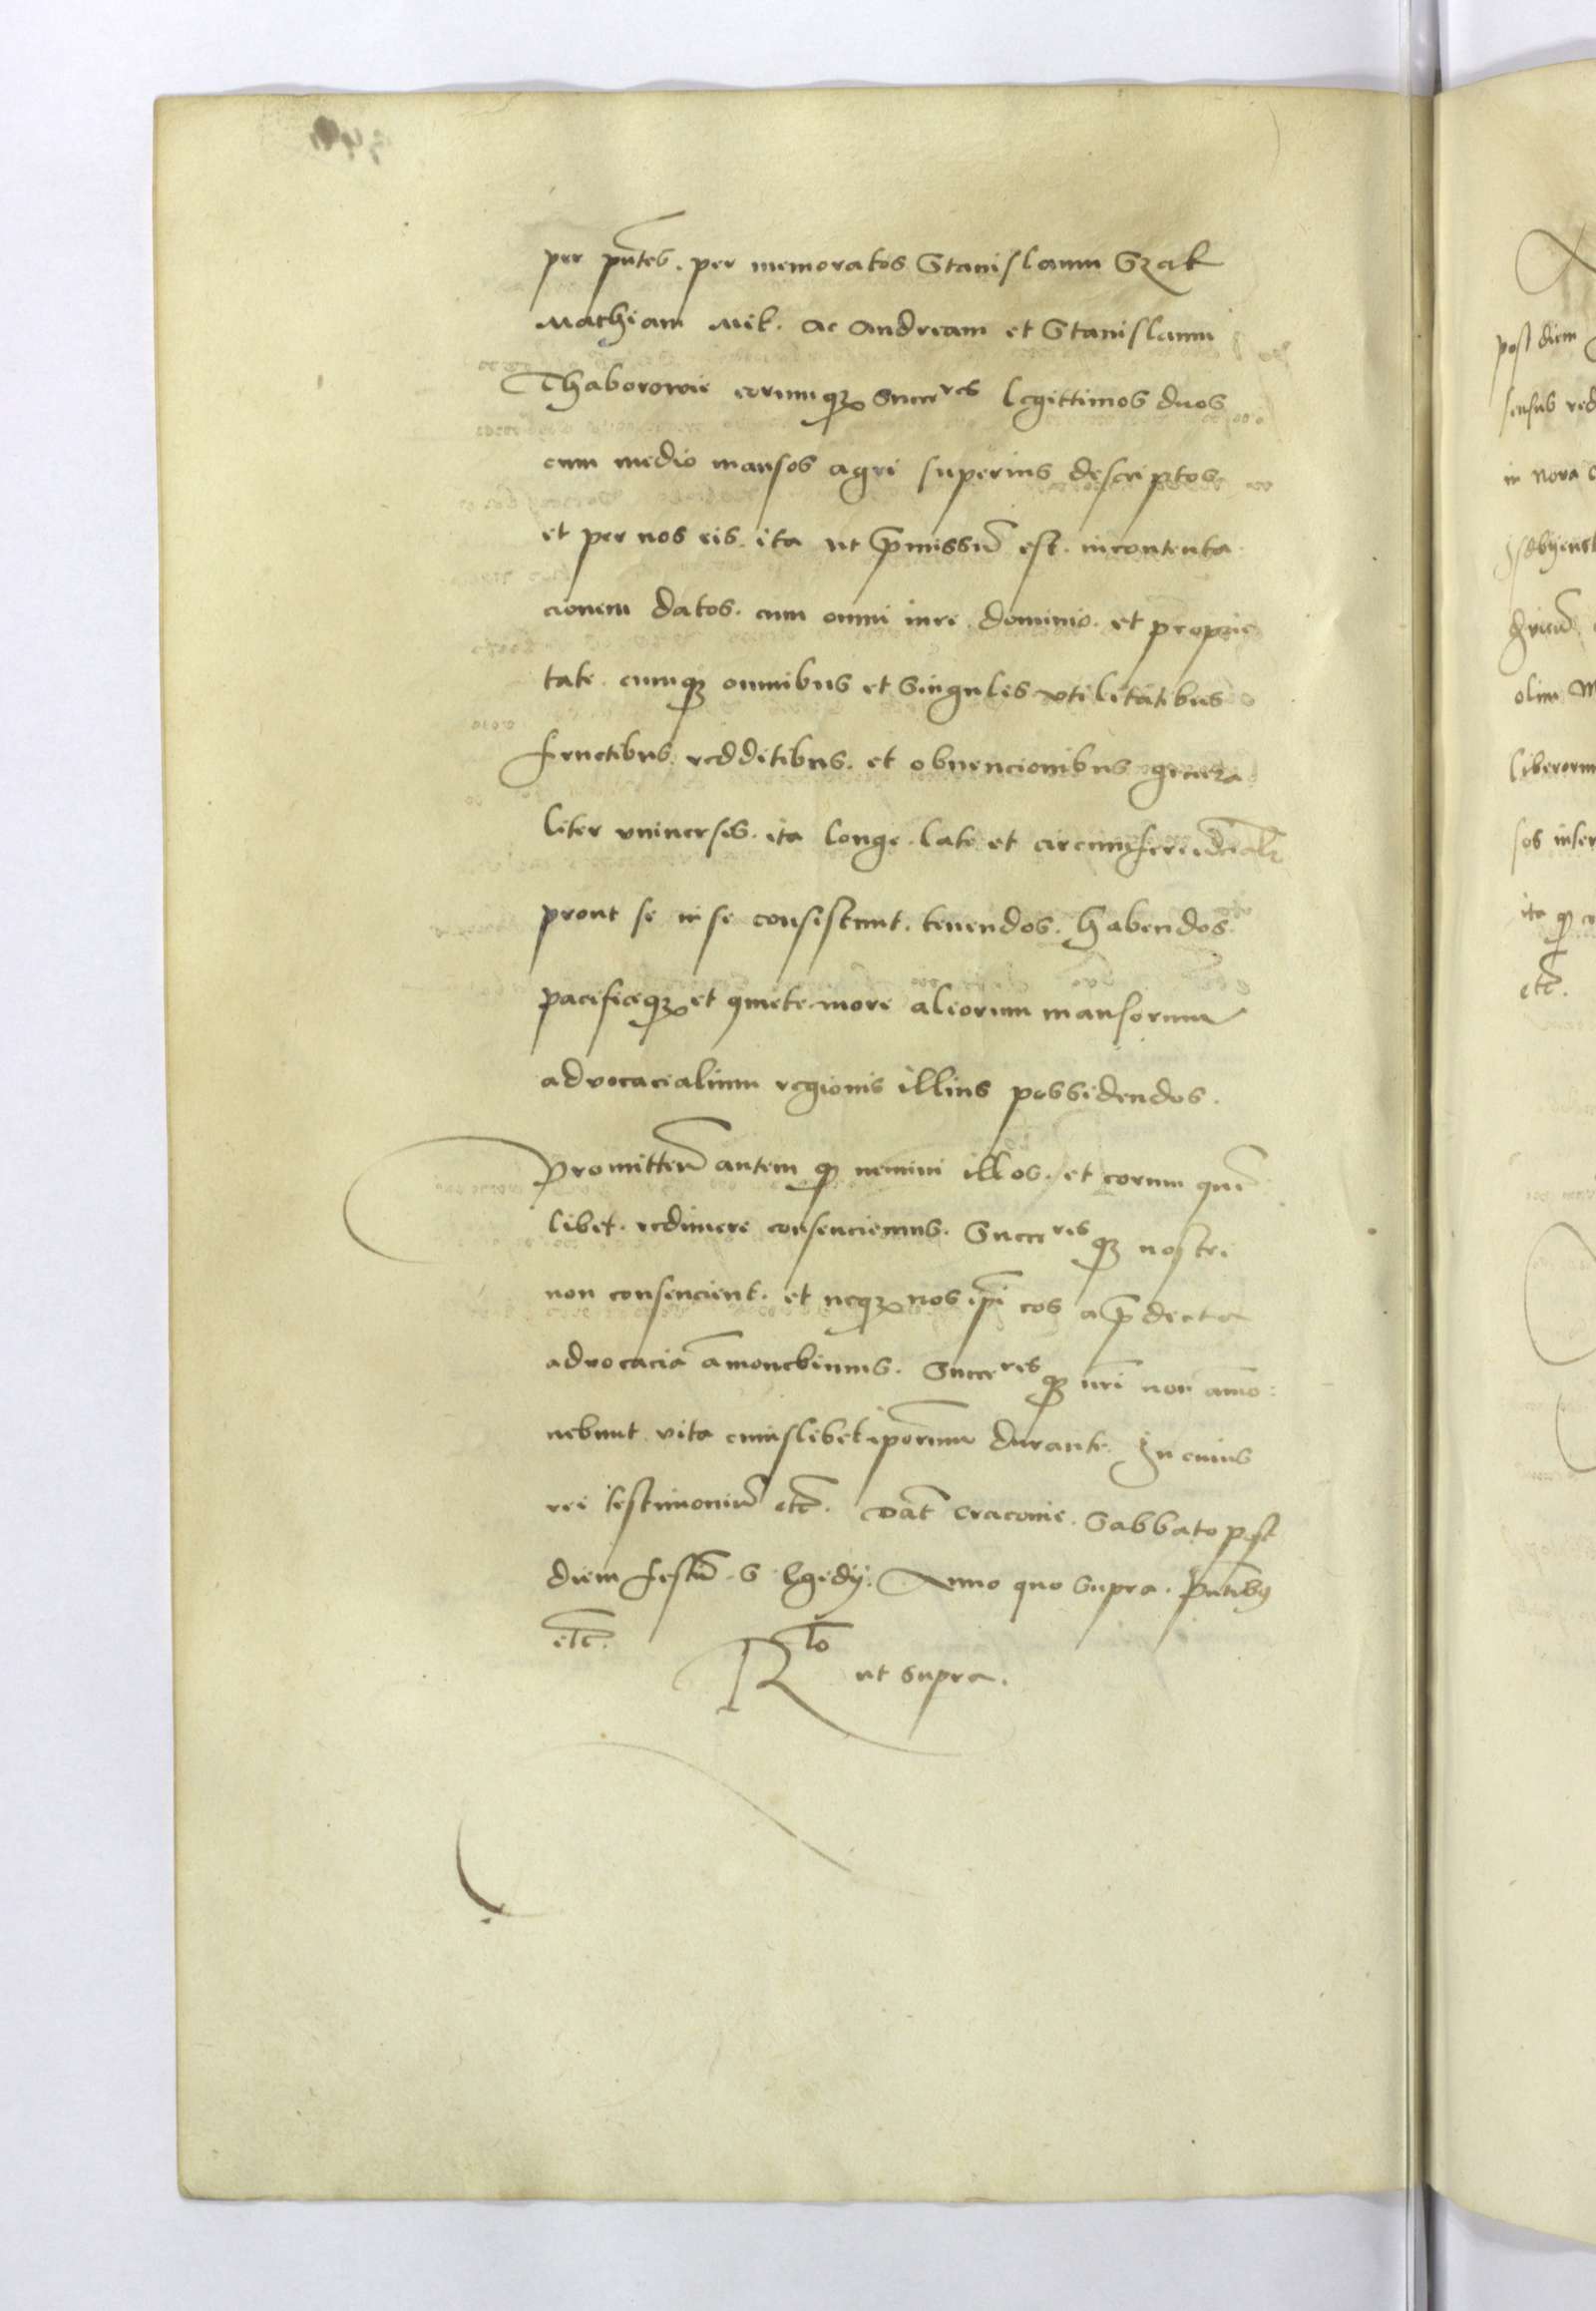 per pñtes. per memoratos Stanislaum Szak
Mathiam Mik. ac Andream et Stanislaum
Thaborowie eorumqꝫ Succeres legittimos duos
cum medio mansos agri superius descriptos
et per nos eis. ita ut p̃missũ est. incontenta
cionem datos. cum omni iure. dominio. et proprie
tate. cumqꝫ omnibus et Singulis vtilitatibus
fructibus. redditibus. et obuencionibus genera
liter vniuersis. ita longe. late et circumferencial̃r
prout se in se consistunt. tenendos. habendos.
pacificeqꝫ et quiete more aliorum mansorum
advocacialium regionis illius possidendos.
Promitteñ autem qꝫ nemini illos. et eorum quẽ
libet. redimere consenciemus. Succeres qꝫ nostri
non consencient. et neqꝫ nos ip̃i eos a p̃dicta
advocaciã amouebimus. Succeres qꝫ nr̃i non amo:
uebunt vita cuiuslibet ip̃orum durante. In cuius
rei testimoniũ etc̃. Dat̃ Cracouie. Sabbato post
diem festũ. S. Egidij. Anno quo Supra. Pñtibꝰ
etc̃.
R̃lo ut Supra.
post diem
sensus red
in nova
olim M
liberorum
sos inser
ita qꝫ
etc̃.